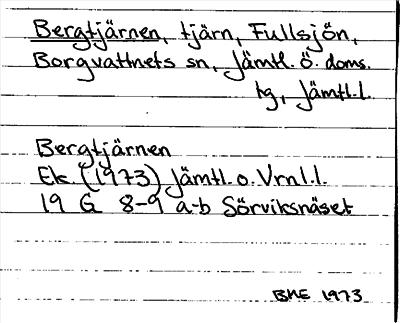 Bergtjärnen, tjärn, Fullsjön,
Borgvattnets sn, Jämtl. ö. doms.
hg, Jämtl.l.
Bergtjärnen
Ek. (1973) Jämtl. o. Vrnl.l.
19 G 8-9 a-b Sörviksnäset
BHE 1973